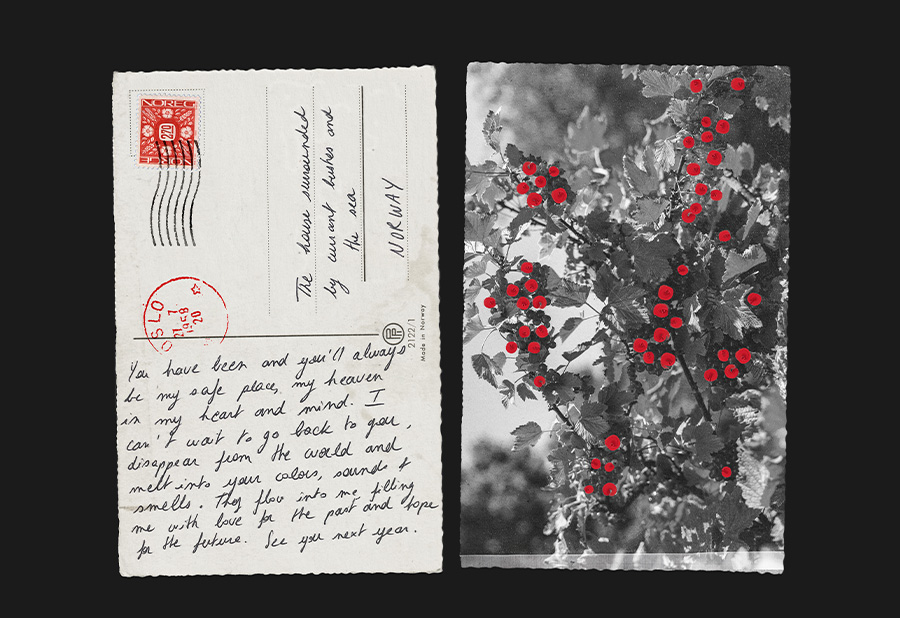 NOREG
220
OSLO
21 7
1958
20
The house surrounded
by currant bushes and
the sea
NORWAY
2122/1
Made in Norway
You have been and you'll always
be my safe place, my heaven
in my heart and mind. I
can't wait to go back to you,
disappear from the world and
melt into your colors, sounds &
smells. They flow into me filling
me with love for the past and hope
for the future. See you next year.